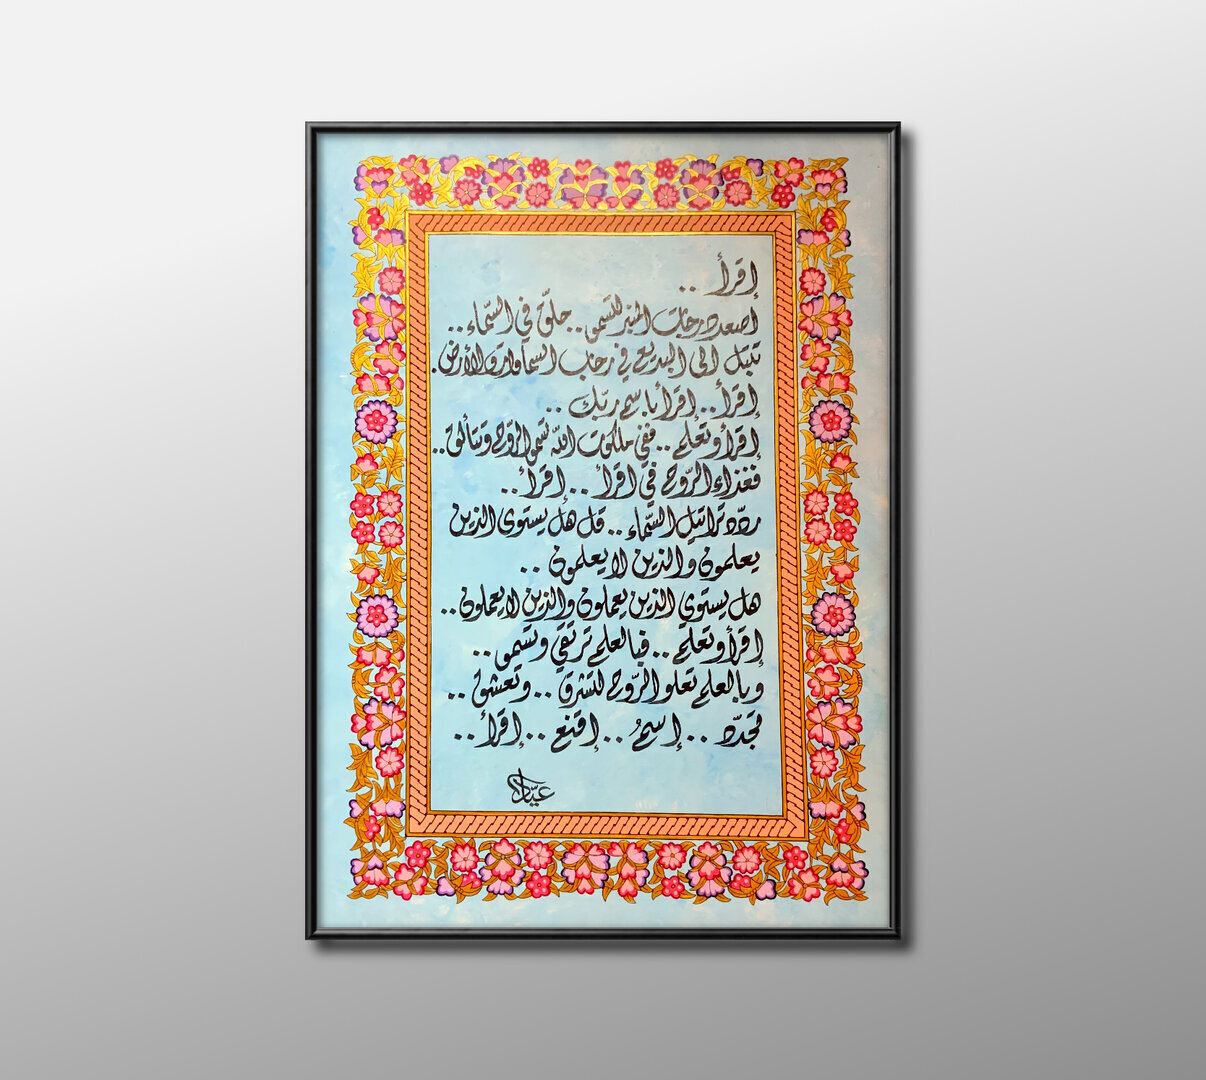 إقرأ ..
اصعد درجات المجد لتسمو .. حلّق في السّماء ..
تبتل الى البديع في رحاب السماوات والأرض.
إقرأ .. إقرأ باسم ربّك ..
إقرأ وتعلم .. ففي ملكوت الله تسمو الرّوح وتتألق ..
فغذاء الرّوح في اقرأ .. إقرأ ..
ردّد تراتيل السّماء .. قل هل يستوي الذين
يعلمون والذين لا يعلمون ..
هل يستوي الذين يعملون والذين لا يعملون ..
إقرأ وتعلم .. فبالعلم ترتقي وتسمو ..
وبالعلم تعلو الرّوح لتشرق .. وتعشق ..
تجدّد .. إسمُ .. إقنع .. إقرأ ..